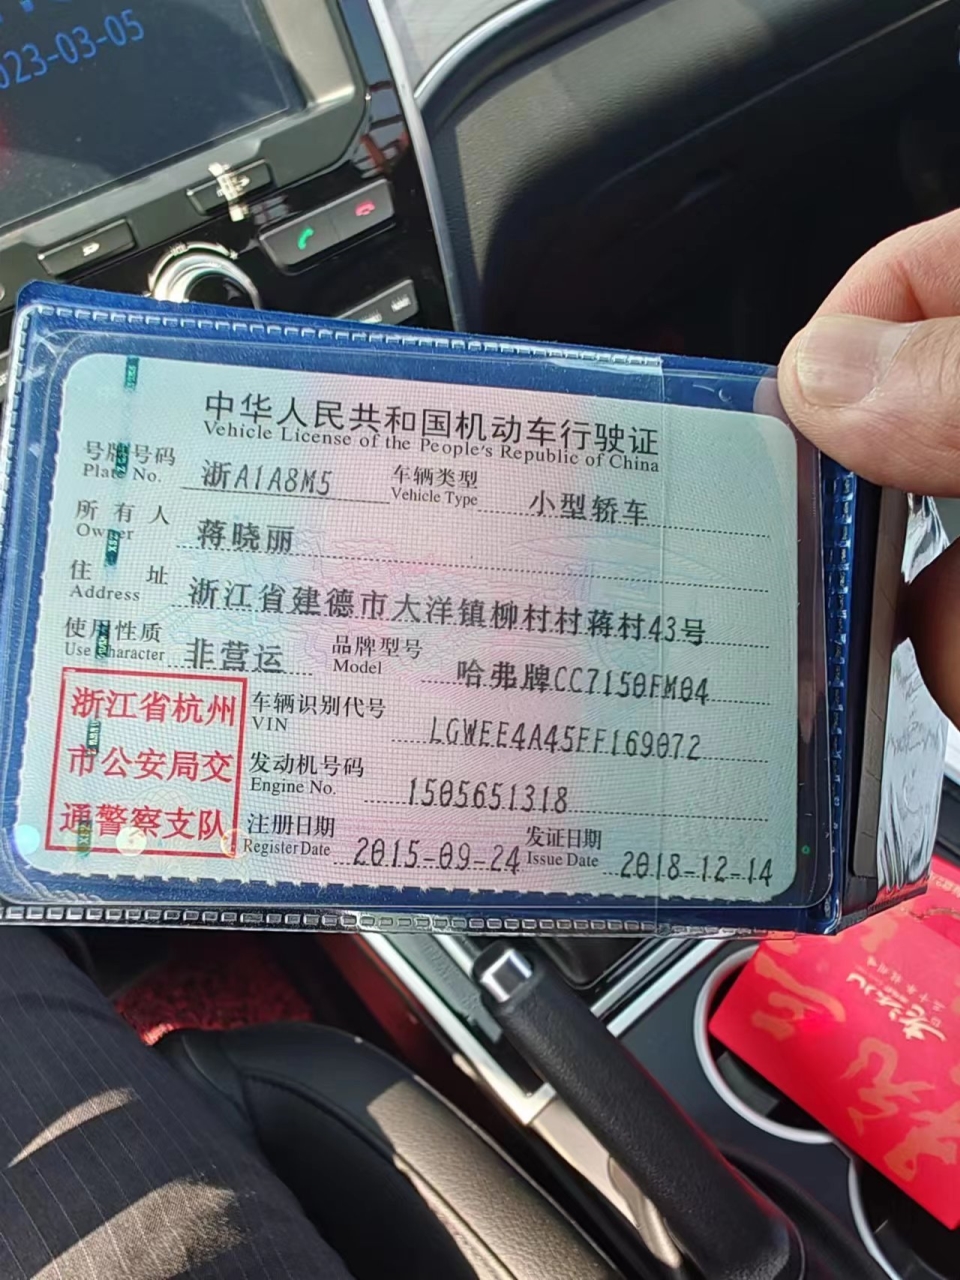 023-03-05
中华人民共和国机动车行驶证
Vehicle License of the People's Republic of China
号牌号码 浙A1A8M5 车辆类型 小型轿车
Plate No. Vehicle Type
所有人 蒋晓丽
Owner
住址 浙江省建德市大洋镇柳村村蒋村43号
Address
使用性质 非营运 品牌型号 哈弗牌CC7150FM04
Use Character Model
浙江省杭州
市公安局交
通警察支队
车辆识别代号 LGWEE4A45FF169072
VIN
发动机号码 1505651318
Engine No.
注册日期 2015-09-24 发证日期 2018-12-14
Register Date Issue Date